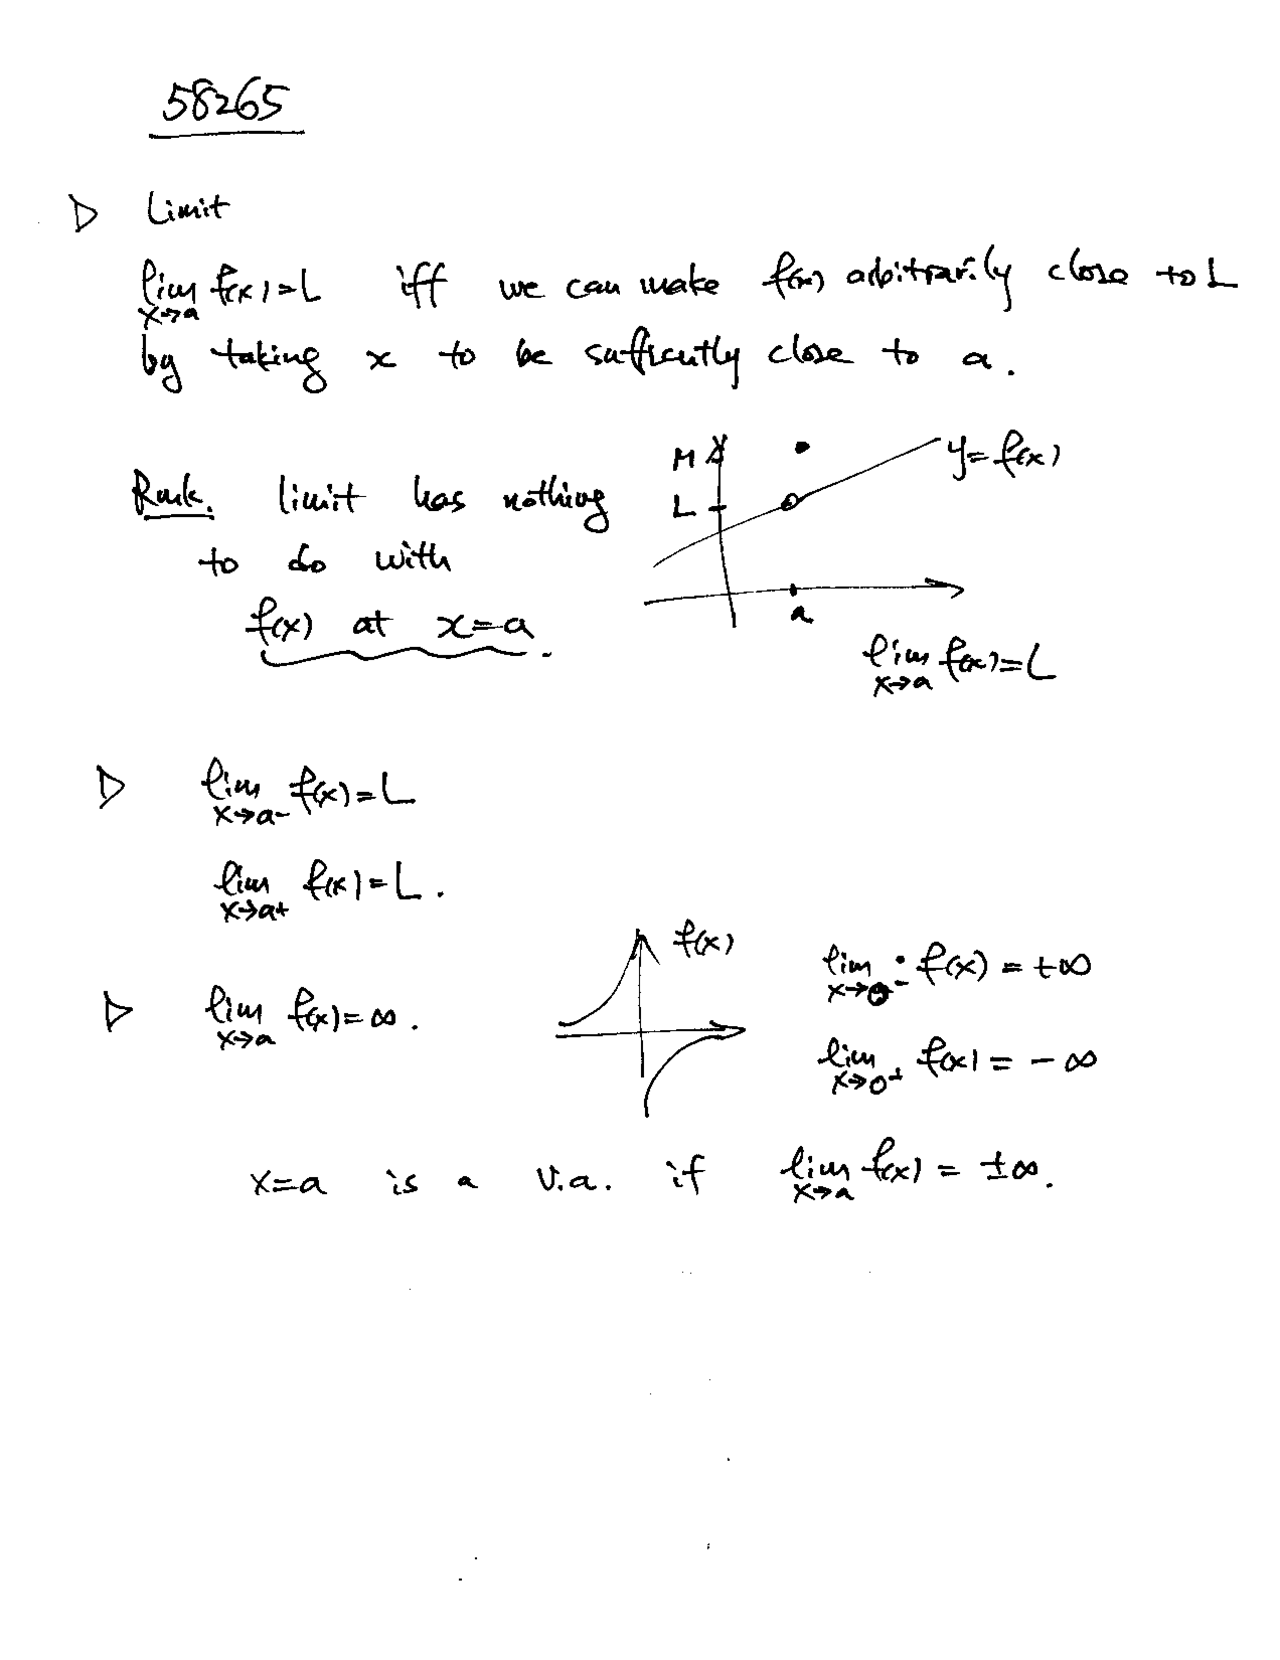 58265
▷ Limit
lim f(x)=L iff we can make f(x) arbitrarily close to L
x→a
by taking x to be sufficently close to a.
Rmk. limit has nothing
to do with
f(x) at x=a.
M
L
y=f(x)
a
lim f(x)=L
x→a
▷ lim f(x)=L
x→a-
lim f(x)=L.
x→a+
▷ lim f(x)=∞.
x→a
f(x)
lim f(x)=+∞
x→0-
lim f(x)=-∞
x→0+
x=a is a v.a. if lim f(x)=±∞.
x→a